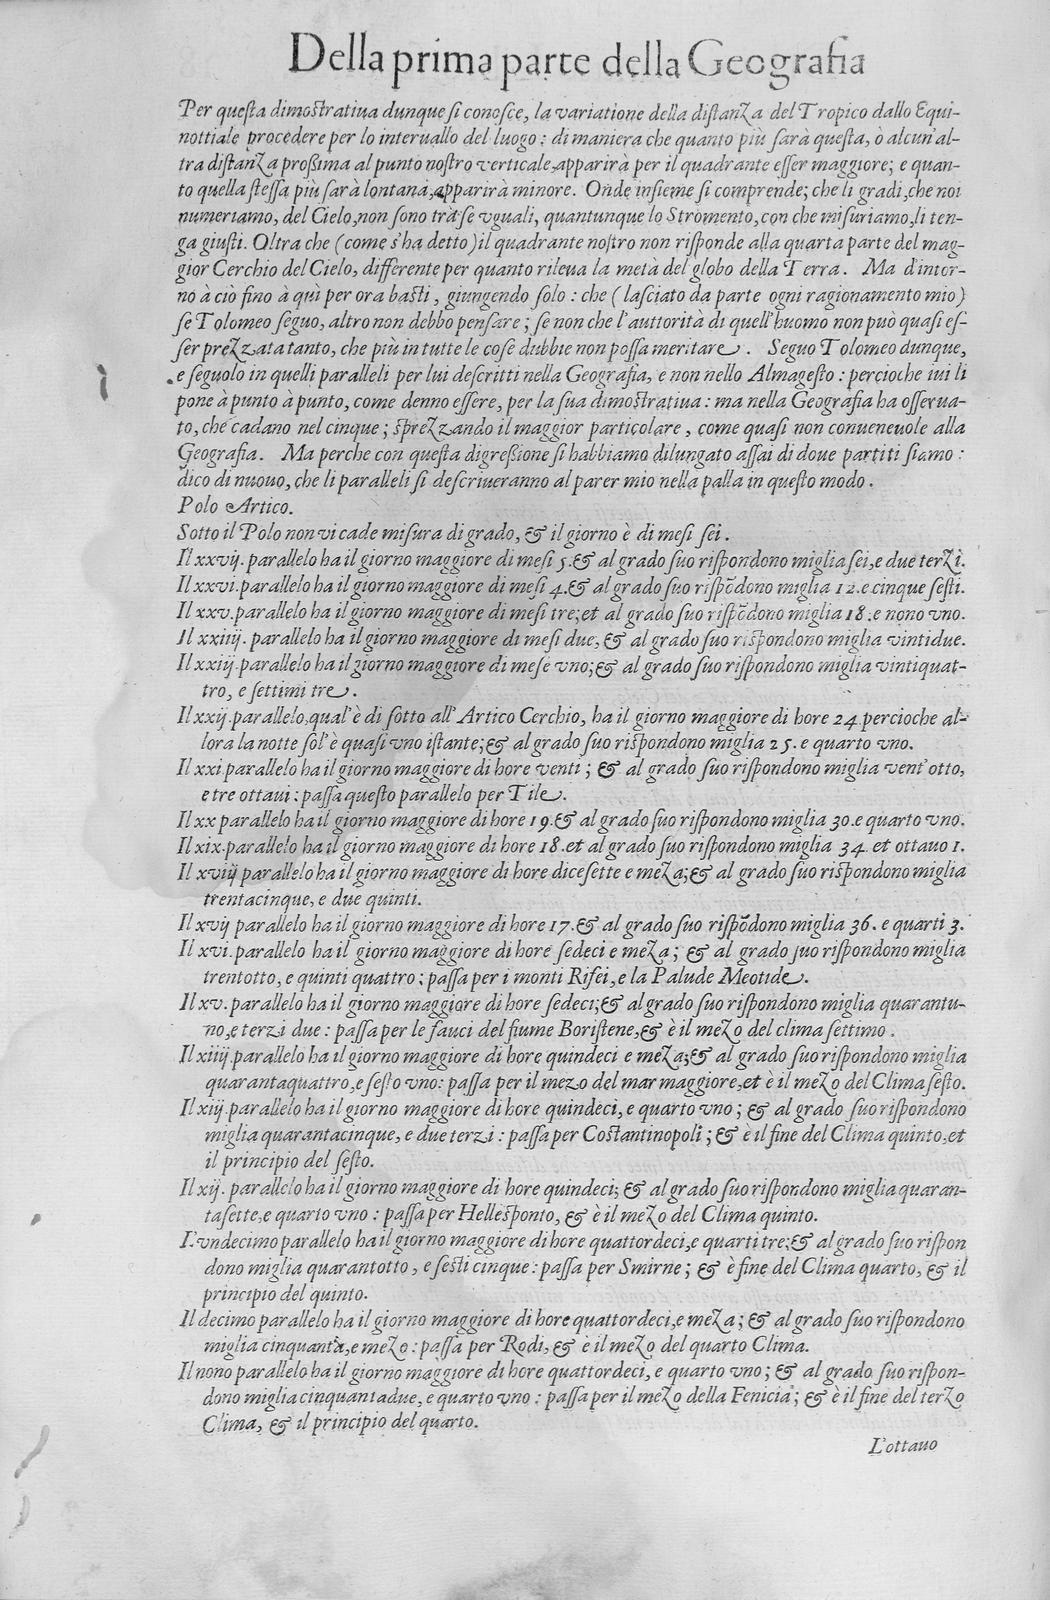 Della prima parte della Geografia
Per questa dimostratiua dunque si conosce, la variatione della distanza del Tropico dallo Equi-
nottiale procedere per lo interuallo del luogo: di maniera che quanto più sarà questa, ò alcun'al-
tra distanza prossima al punto nostro verticale, apparirà per il quadrante esser maggiore; e quan-
to quella stessa più sarà lontana, apparirà minore. Onde insieme si comprende; che li gradi, che noi
numeriamo, del Cielo, non sono trà se vguali, quantunque lo Stromento, con che misuriamo, li ten-
ga giusti. Oltra che (come s'ha detto) il quadrante nostro non risponde alla quarta parte del mag-
gior Cerchio del Cielo, differente per quanto rileua la metà del globo della Terra. Ma d'intor-
no à ciò fino à quì per ora basti, giungendo solo: che (lasciato da parte ogni ragionamento mio)
se Tolomeo seguo, altro non debbo pensare; se non che l'auttorità di quell'huomo non può quasi es-
ser prezzata tanto, che più in tutte le cose dubbie non possa meritare. Seguo Tolomeo dunque,
e seguolo in quelli paralleli per lui descritti nella Geografia, e non nello Almagesto: percioche iui li
pone à punto à punto, come denno essere, per la sua dimostratiua: ma nella Geografia ha osserua-
to, che cadano nel cinque; sprezzando il maggior particolare, come quasi non conueneuole alla
Geografia. Ma perche con questa digressione si habbiamo dilungato assai di doue partiti siamo:
dico di nuouo, che li paralleli si descriueranno al parer mio nella palla in questo modo.
Polo Artico.
Sotto il Polo non vi cade misura di grado, & il giorno è di mesi sei.
Il xxvij. parallelo ha il giorno maggiore di mesi 5. & al grado suo rispondono miglia sei, e due terzi.
Il xxvi. parallelo ha il giorno maggiore di mesi 4. & al grado suo rispōdono miglia 12. e cinque sesti.
Il xxv. parallelo ha il giorno maggiore di mesi tre; et al grado suo rispōdono miglia 18. e nono vno.
Il xxiiij. parallelo ha il giorno maggiore di mesi due, & al grado suo rispondono miglia vintidue.
Il xxiij. parallelo ha il giorno maggiore di mese vno; & al grado suo rispondono miglia vintiquat-
tro, e settimi tre.
Il xxij. parallelo, qual'è di sotto all'Artico Cerchio, ha il giorno maggiore di hore 24 percioche al-
lora la notte sol'è quasi vno istante; & al grado suo rispondono miglia 25. e quarto vno.
Il xxi parallelo ha il giorno maggiore di hore venti; & al grado suo rispondono miglia vent'otto,
e tre ottaui: passa questo parallelo per Tile.
Il xx parallelo ha il giorno maggiore di hore 19. & al grado suo rispondono miglia 30. e quarto vno.
Il xix. parallelo ha il giorno maggiore di hore 18. et al grado suo rispondono miglia 34 et ottauo 1.
Il xviij parallelo ha il giorno maggiore di hore dicesette e meza; & al grado suo rispondono miglia
trentacinque, e due quinti.
Il xvij parallelo ha il giorno maggiore di hore 17. & al grado suo rispōdono miglia 36. e quarti 3.
Il xvi. parallelo ha il giorno maggiore di hore sedeci e meza; & al grado suo rispondono miglia
trentotto, e quinti quattro: passa per i monti Rifei, e la Palude Meotide.
Il xv. parallelo ha il giorno maggiore di hore sedeci; & al grado suo rispondono miglia quarantu-
no, e terzi due: passa per le fauci del fiume Boristene, & è il mezo del clima settimo.
Il xiiij. parallelo ha il giorno maggiore di hore quindeci e meza; & al grado suo rispondono miglia
quarantaquattro, e sesto vno: passa per il mezo del mar maggiore, et è il mezo del Clima sesto.
Il xiij. parallelo ha il giorno maggiore di hore quindeci, e quarto vno; & al grado suo rispondono
miglia quarantacinque, e due terzi: passa per Costantinopoli; & è il fine del Clima quinto, et
il principio del sesto.
Il xij. parallelo ha il giorno maggiore di hore quindeci; & al grado suo rispondono miglia quaran-
tasette, e quarto vno: passa per Hellesponto, & è il mezo del Clima quinto.
L'vndecimo parallelo ha il giorno maggiore di hore quattordeci, e quarti tre; & al grado suo rispon
dono miglia quarantotto, e sesti cinque: passa per Smirne; & è fine del Clima quarto, & il
principio del quinto.
Il decimo parallelo ha il giorno maggiore di hore quattordeci, e meza; & al grado suo rispondono
miglia cinquanta, e mezo: passa per Rodi, & è il mezo del quarto Clima.
Il nono parallelo ha il giorno maggiore di hore quattordeci, e quarto vno; & al grado suo rispon-
dono miglia cinquantadue, e quarto vno: passa per il mezo della Fenicia; & è il fine del terzo
Clima, & il principio del quarto.
L'ottauo